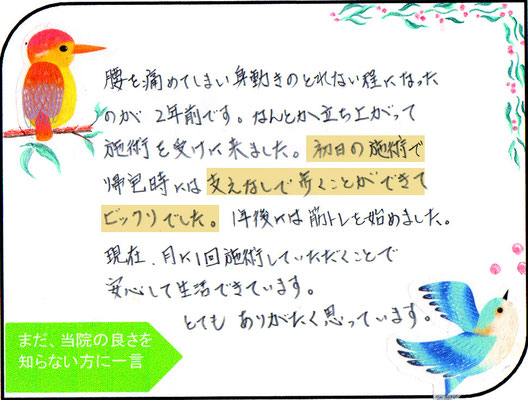 腰を痛めてしまい身動きのとれない程になった
のが 2年前です。なんとか立ち上がって
施術を受けに来ました。初日の施術で
帰宅時には支えなしで歩くことができて
ビックリでした。1年後には筋トレを始めました。
現在、月に1回施術していただくことで
安心して生活できています。
とても ありがたく思っています。
まだ、当院の良さを
知らない方に一言